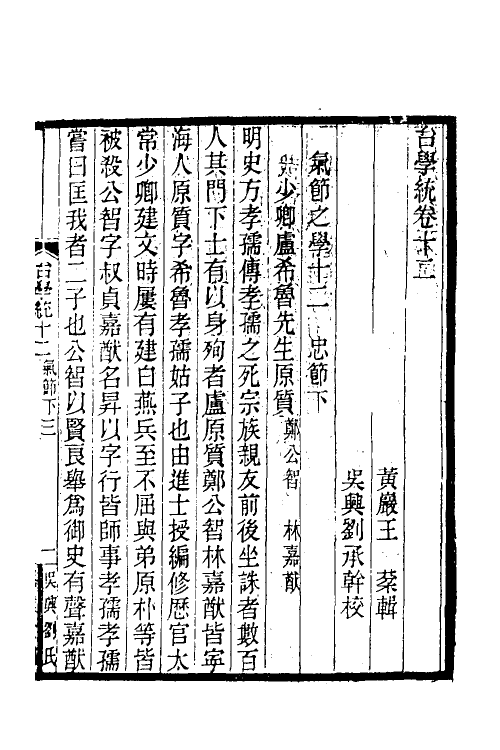 台學統卷十三
黃巖王 棻輯
吳興劉承幹校
氣節之學十二 忠節下
少卿盧希魯先生原質 鄭公智 林嘉猷
明史方孝孺傳孝孺之死宗族親友前後坐誅者數百
人其門下士有以身殉者盧原質鄭公智林嘉猷皆寧
海人原質字希魯孝孺姑子也由進士授編修歴官太
常少卿建文時屢有建白燕兵至不屈與弟原朴等皆
被殺公智字叔貞嘉猷名昇以字行皆師事孝孺孝孺
嘗曰匡我者二子也公智以賢良舉爲御史有聲嘉猷
台學統十三 氣節下三 一 吳興劉氏